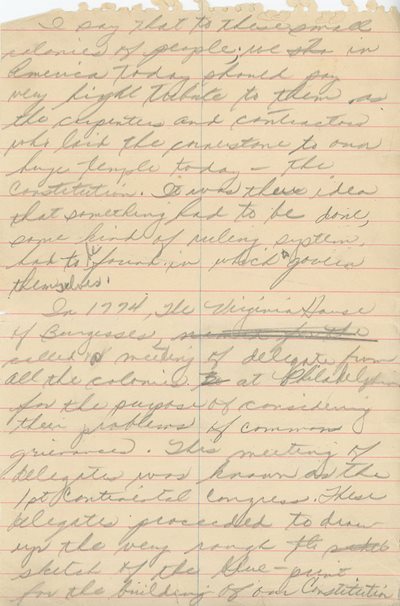 I say that to these small
colonies of people, we sho in
America today should pay
very hight tribute to them as
the carpenters and contractors
who laid the cornerstone to our
huge temple today - the
Constitution. It was their idea
that something had to be done,
some kind of ruling system
had to be found in which to govern
themselves.
In 1774, The Virginia House
of Burgesses, named for the
called a meeting of delegate from
all the colonies at Philadelphia
for the purpose of considering
their problems of common
grievances. This meeting of
delegates was known as the
1st Continental Congress. These
delegates proceeded to draw-
up the very rough
sketch of the blue-print
for the building of our Constitution